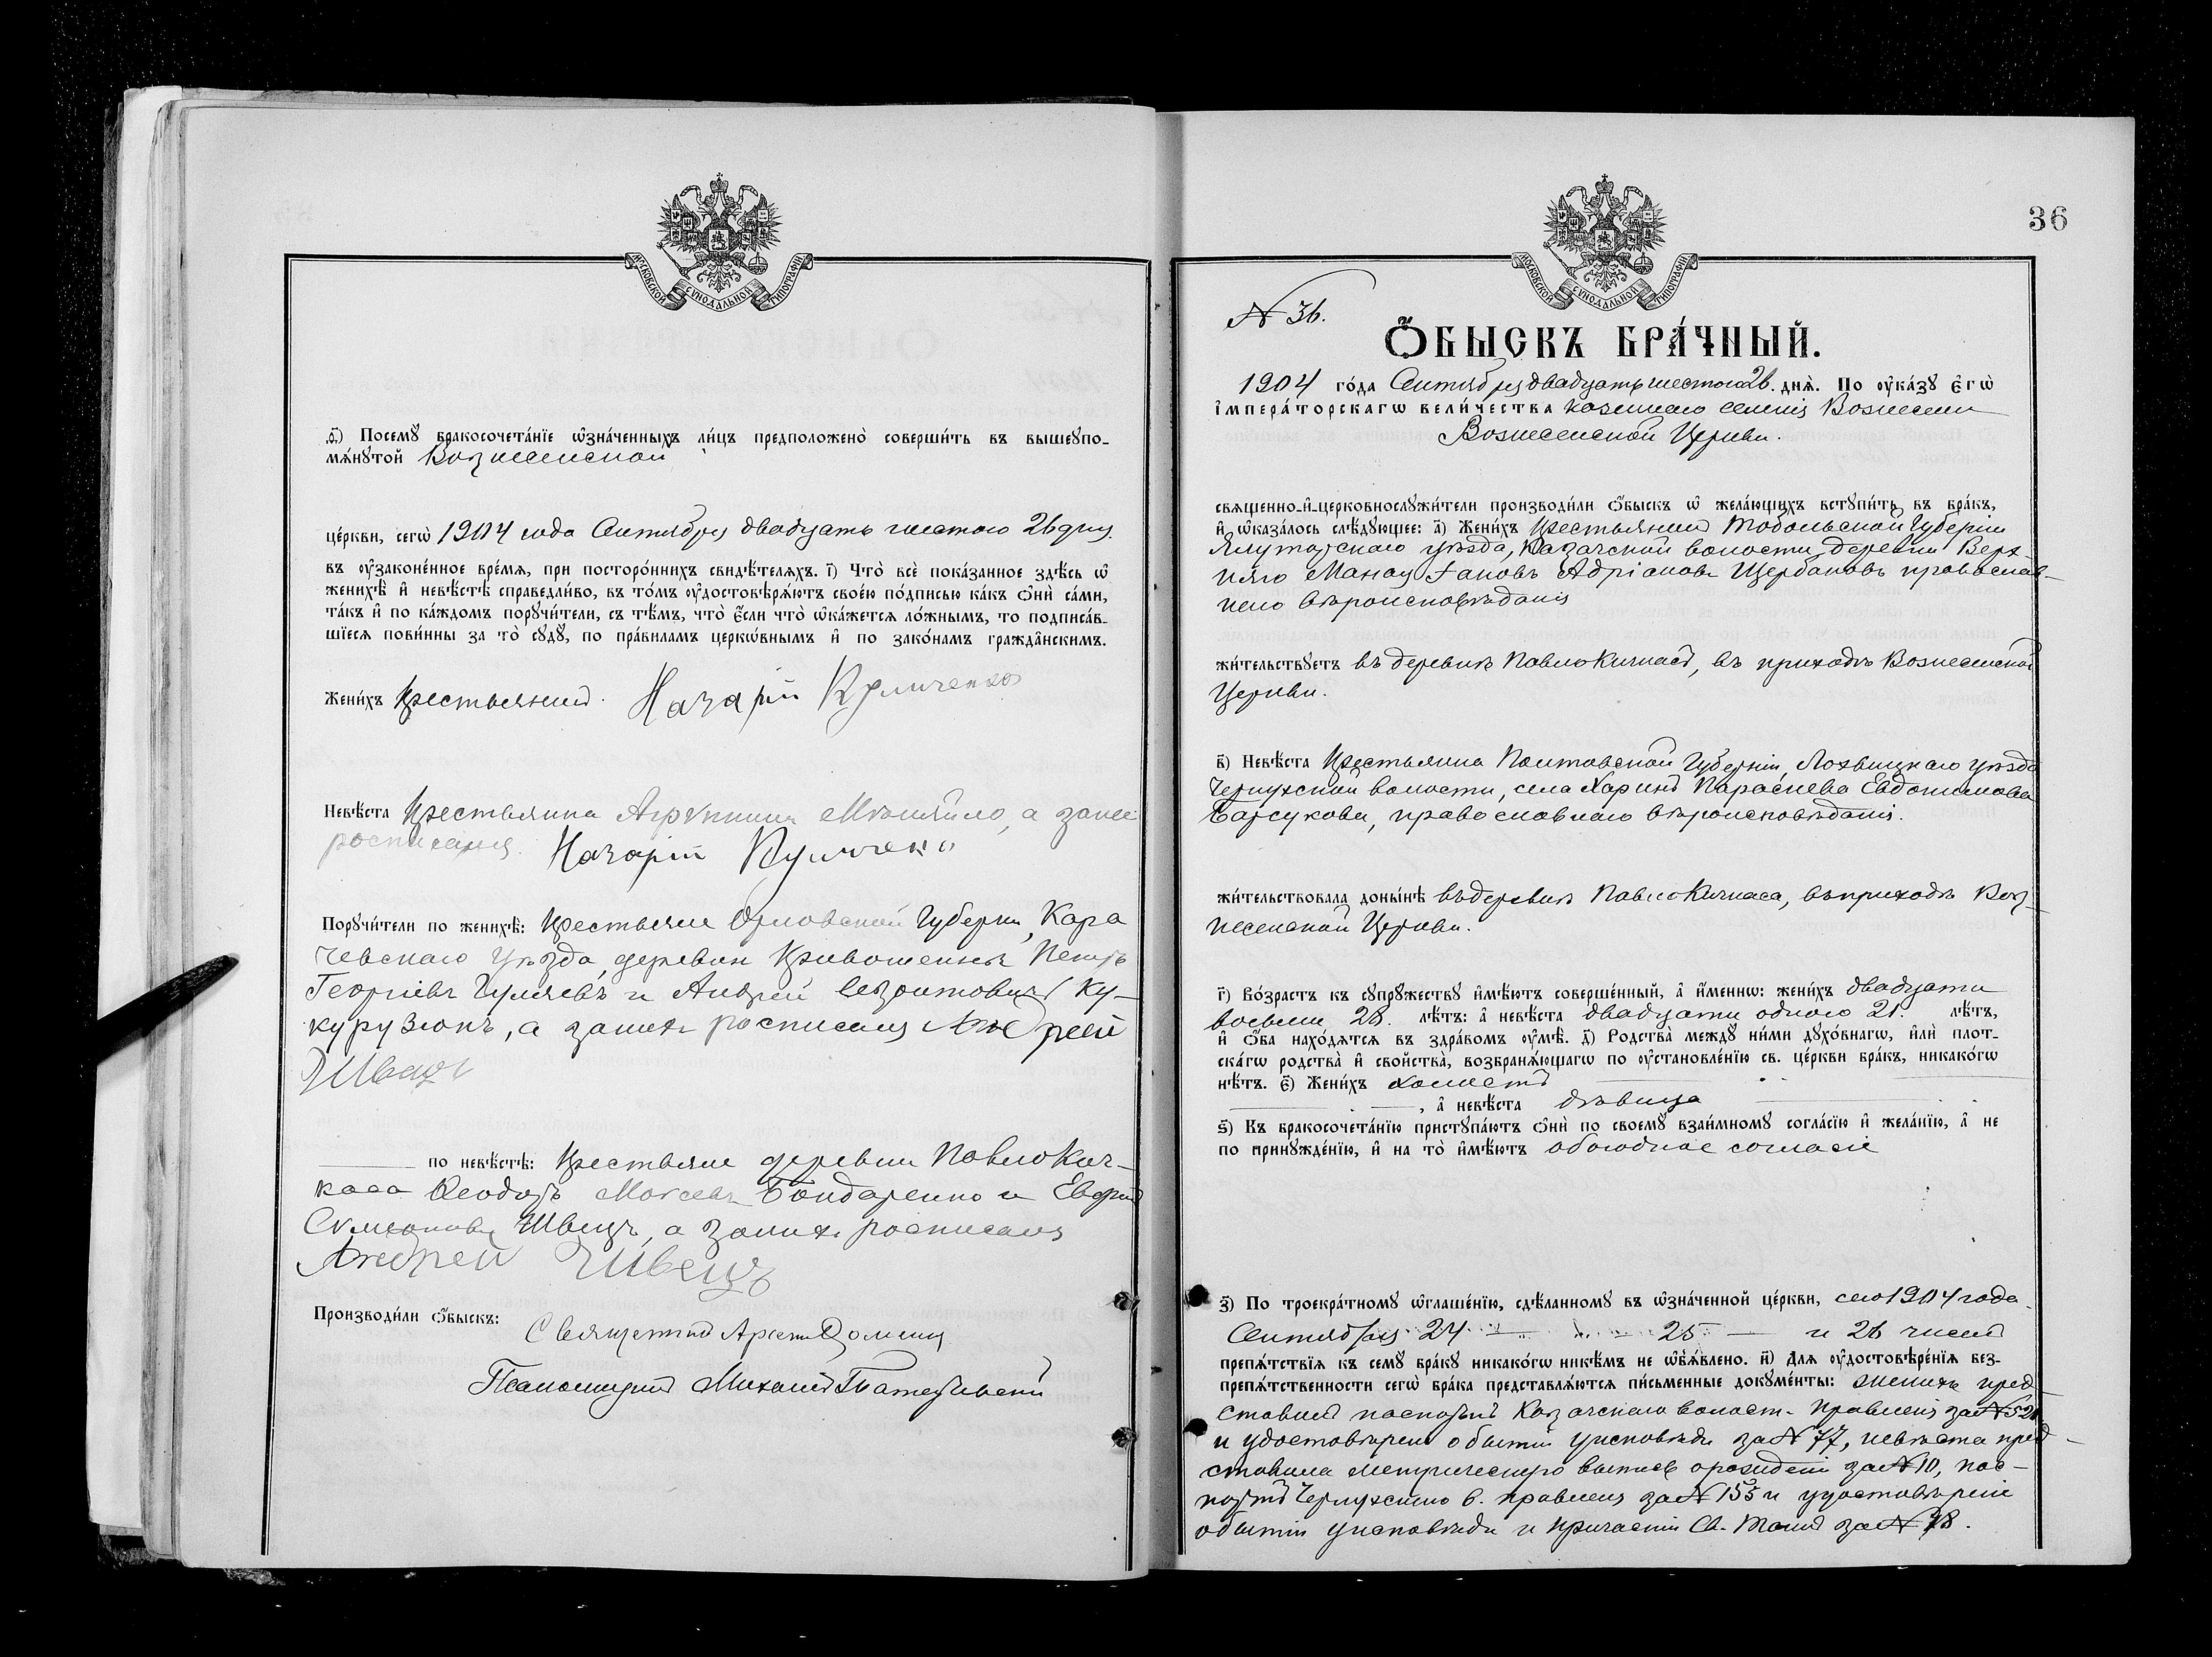 МОСКОВСКОЙ СѴНОДАЛЬНОЙ ТИПОГРАФІИ
ѳ҃) Посемꙋ̀ бракосочета́нїе ѡ҆зна́ченныхъ ли́цъ предположено̀ соверши́ть въ вышеꙋпо-
мѧ́нꙋтой Вознесенской
це́ркви, сегѡ̀ 1904 года Сентября двадцать шестого 26 дня.
въ ᲂу҆законе́нное вре́мѧ, при посторо́ннихъ свидѣ́телѧхъ. і҃) Что̀ всѐ пока́занное здѣ́сь ѡ҆
женихѣ̀ и҆ невѣ́стѣ справедли́во, въ то́мъ ᲂу҆достовѣрѧ́ютъ свое́ю по́дписью ка́къ ѻ҆нѝ са́ми,
та́къ и҆ по ка́ждомъ порꙋчи́тели, съ тѣ́мъ, что̀ є҆́сли что̀ ѡ҆ка́жетсѧ ло́жнымъ, то подписа́в-
шїесѧ пови́нны за то̀ сꙋдꙋ̀, по пра́виламъ церкѡ́внымъ и҆ по зако́намъ гражда̂нскимъ.
Жени́хъ Крестьянинъ Назарій Куличенко
Невѣ́ста Крестьянка Агрипина а за нее
росписался Назарій Куличенко
Порꙋчи́тели по женихѣ̀: Крестьяне Орловской Губерніи, Кара
чевскаго Уѣзда, деревни Петръ
Георгіевъ Гуляевъ и Андрей Ку-
курузюкъ, а за нихъ росписался Андрей
Швецъ
по невѣ́стѣ: Крестьяне деревни Павло Кич-
каса Ѳеодоръ Бондаренко и
Швецъ, а за нихъ росписался
Андрей Швецъ
Производи́ли ѻ҆́быскъ: Священникъ
Псаломщикъ Михаилъ
36
МОСКОВСКОЙ СѴНОДАЛЬНОЙ ТИПОГРАФІИ
№ 36.
Ѻ҆́БЫСКЪ БРА́ЧНЫЙ.
1904 го́да Сентября двадцать шестого 26. днѧ̀. По ᲂу҆ка́зꙋ є҆гѡ̀
і҆мпера́торскагѡ вели́чества селенія Вознесенки
Вознесенской Церкви.
свѧщенно-и҆-церковнослꙋжи́тели производи́ли ѻ҆́быскъ ѡ҆ жела́ющихъ встꙋпи́ть въ бра́къ,
и҆ ѡ҆каза́лось слѣ́дꙋющее: а҃) Жени́хъ Крестьянинъ Тобольской Губерніи
Ялуторскаго уѣзда, Казачской волости, деревни Верх-
няго Іаковъ Адріановъ Щербаковъ православ-
наго вѣроисповѣданія
жи́тельствꙋетъ въ деревнѣ Павло Кичкасѣ, въ приходѣ Вознесенской
Церкви.
в҃) Невѣ́ста Крестьянка Полтавской Губерніи, Лохвицкаго уѣзда
Чернухской волости, села Параскева Евдокимова
Барсукова, православнаго вѣроисповѣданія.
жи́тельствовала доны́нѣ въ деревнѣ Павло Кичкаса, въ приходѣ Воз-
несенской Церкви.
г҃) Во́зрастъ къ сꙋпрꙋ́жествꙋ и҆мѣ́ютъ соверше́нный, а҆ и҆́меннѡ: жени́хъ двадцати
восьми 28. лѣ́тъ: а҆ невѣ́ста двадцати одного 21. лѣ́тъ,
и҆ ѻ҆́ба нахо́дѧтсѧ въ здра́вомъ ᲂу҆мѣ̀. д҃) Родства̀ междꙋ̀ ни́ми дꙋхо́внагѡ, и҆лѝ плот-
ска́гѡ родства̀ и҆ сво́йства̀, возбранѧ́ющагѡ по ᲂу҆становле́нїю св. це́ркви бра́къ, никако́гѡ
нѣ́тъ. є҃) Жени́хъ холостъ
, а҆ невѣ́ста дѣвица
ѕ҃) Къ бракосочета́нїю пристꙋпа́ютъ ѻ҆нѝ по своемꙋ̀ взаи́мномꙋ согла́сїю и҆ жела́нїю, а҆ не
по принꙋжде́нїю, и҆ на то̀ и҆мѣ́ютъ обоюдное согласіе
з҃) По троекра́тномꙋ ѡ҆глаше́нїю, сдѣ́ланномꙋ въ ѡ҆зна́ченной це́ркви, сего 1904 года
Сентября 24 25 и 26 числъ
препѧ́тствїѧ къ семꙋ̀ бра́кꙋ никако́гѡ никѣ́мъ не ѡ҆б̾ѧ́влено. и҃) Длѧ ᲂу҆достовѣре́нїѧ без-
препѧ́тственности сегѡ̀ бра́ка представлѧ́ютсѧ пи́сьменные докꙋме́нты: женихъ пред-
ставилъ паспортъ Казачскаго волост. Правленія за № 52
и удостовѣреніе о бытіи у исповѣди за № 77, невѣста пред-
ставила метрическую выпись о рожденіи за № 10, пас-
портъ Чернухскаго в. правленія за № 155 и удостовѣреніе
о бытіи у исповѣди и причастіи Св. Таинъ за № 78.